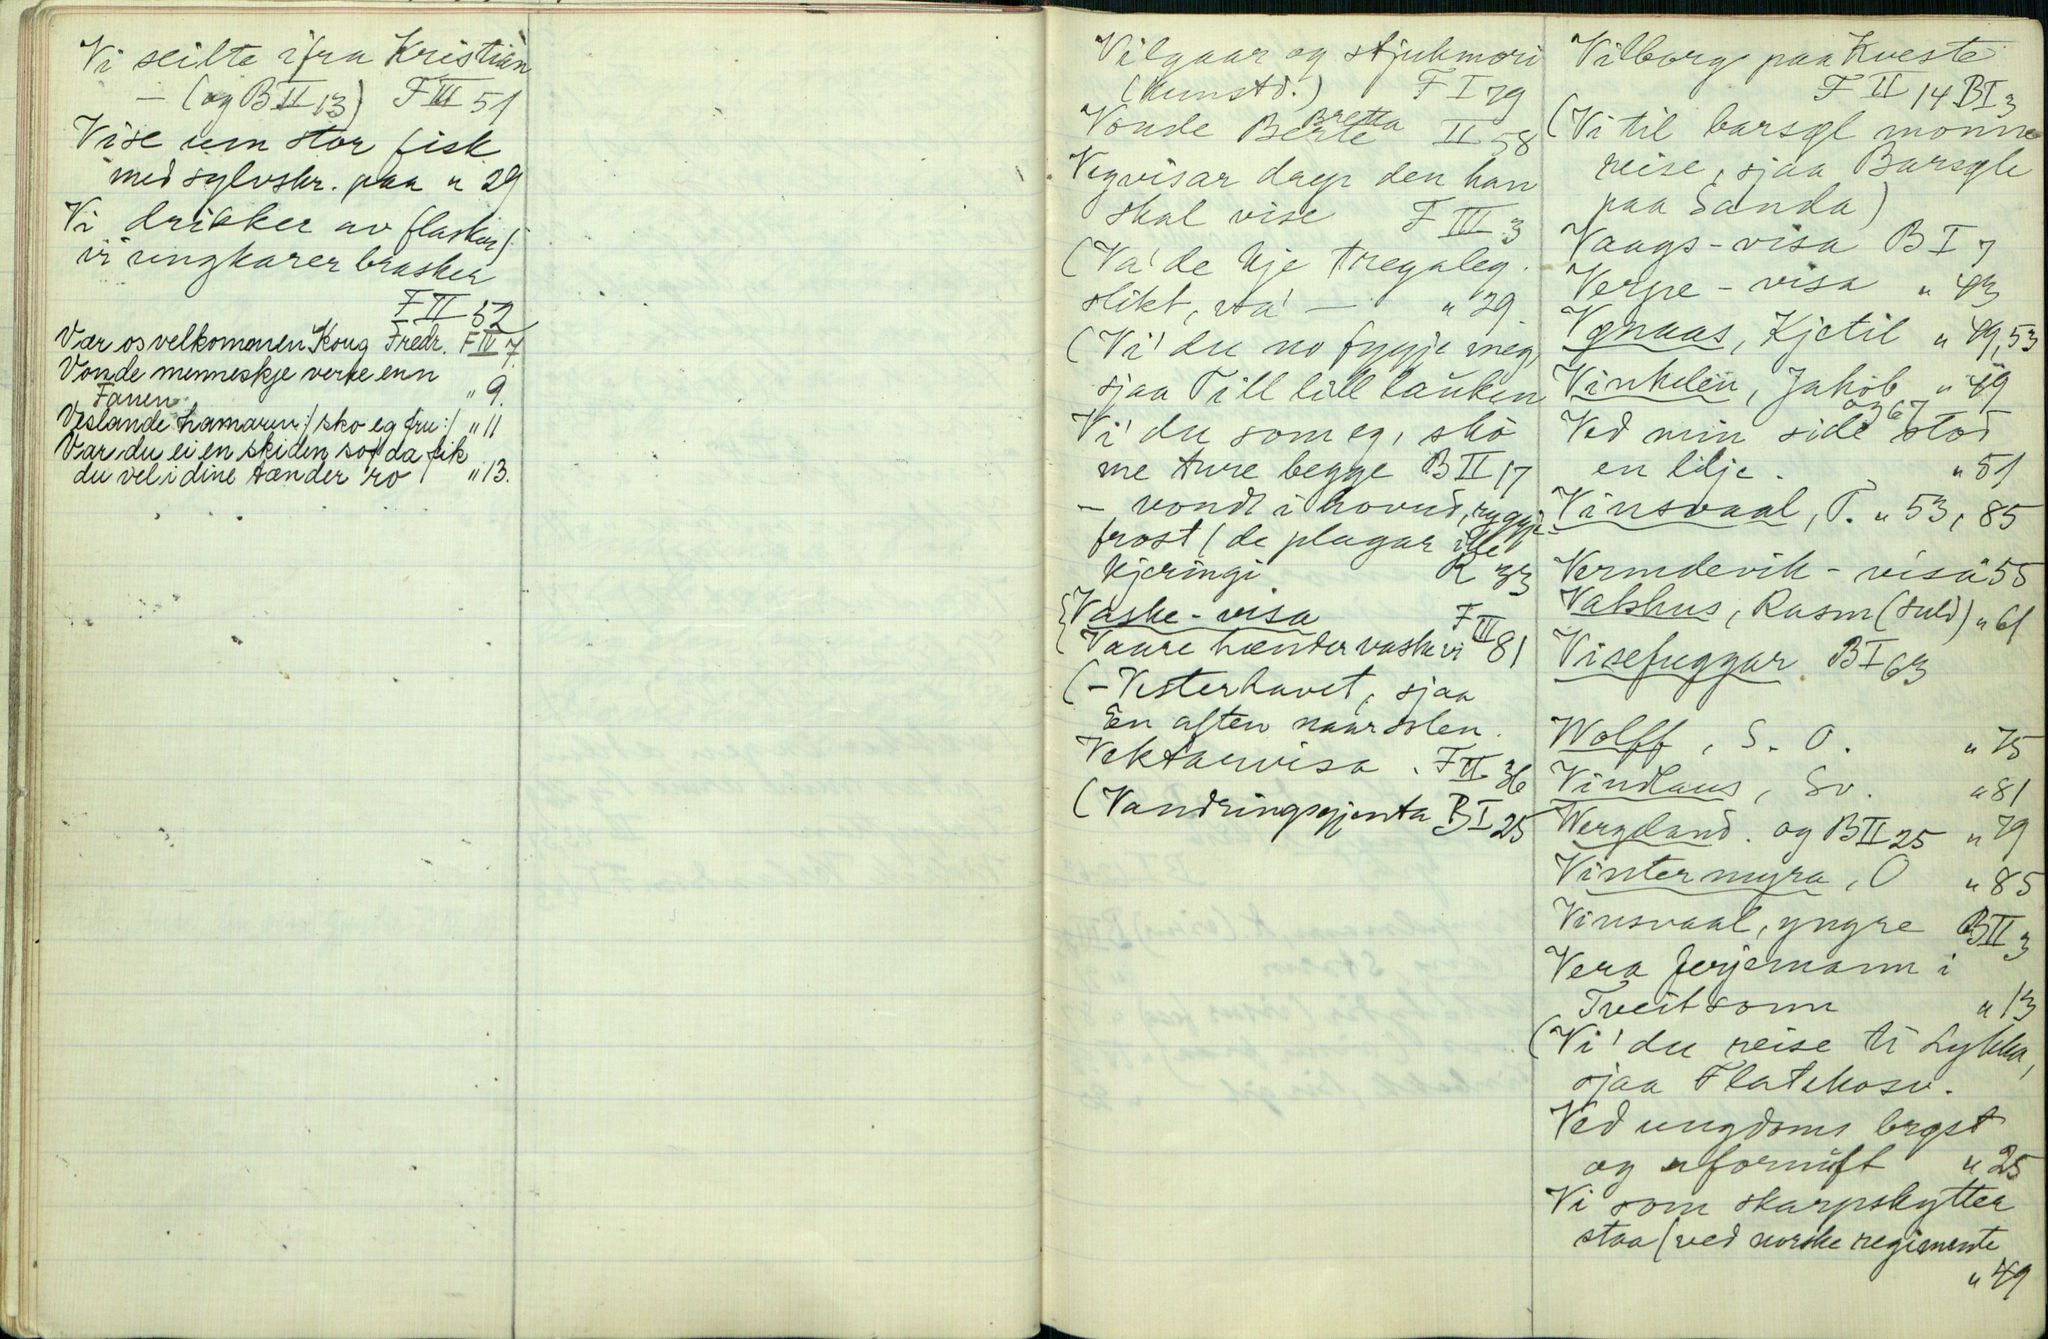 Vi seilte ifra Kristian
— (og B II 13) F III 51
Vise um stor fisk
med sylvskr. paa " 29
Vi drikker av flasker/
vi ungkarer brasker
F II 52
Vær os velkommen Kong Fredr. F IV 7.
Vonde menneskje verre enn
Fanen " 9.
Veslande Hamaren :/ sko eg fru :/ " 11
Var du ei en skiden so/ da fik
du vel i dine tænder ro " 13.
Vilgaar og stjukmori
(kunstd.) F I 79
Bretta
Vonde Berte II 58
Vegvisar drep den han
skal vise F III 3
(Va' de kje tregaleg.
slikt, va' — " 29
(Vi' du no fygje meg
sjaa Till lill lauken
Vi' du som eg, sko
me ture begge B II 17
— vondt i hovud, ryggje
frost / de plagar ille
kjeringi R 33
{Vaske-visa F III
{Vaare hænder vaske vi 81
(— Vesterhavet, sjaa
En aften naar solen.
Vektarvisa. F II 36
(Vandringsgjenta B I 25
Vilborg paa Kveste
F II 14 B I 3
(Vi til barsøl monne
reise, sjaa Barsøle
paa Sanda)
Vaags-visa B I 7
Verpe-visa " 43
Vønaas, Kjetil " 49, 53
Vinkelen, Jakob " 49
og 67
Ved min side stod
en lilje. " 51
Vinsvaal, T. " 53, 85
Vermdevik-visa " 55
Vatshus, Rasm (Suld) " 61
Visefuggar B I 63
Wolff, S. O. " 75
Vindlaus, Sv. " 81
Wergeland. og B II 25 " 79
Vintermyra, O " 85
Vinsvaal, yngre B II 3
Vera ferjemann i
Tveitsonn " 13
(Vi' du reise ti Lykka,
sjaa Flatekosv.
Ved ungdoms brøst
og ufornuft " 25
Vi som skarpskytter
staa / ved norske regimente
" 49